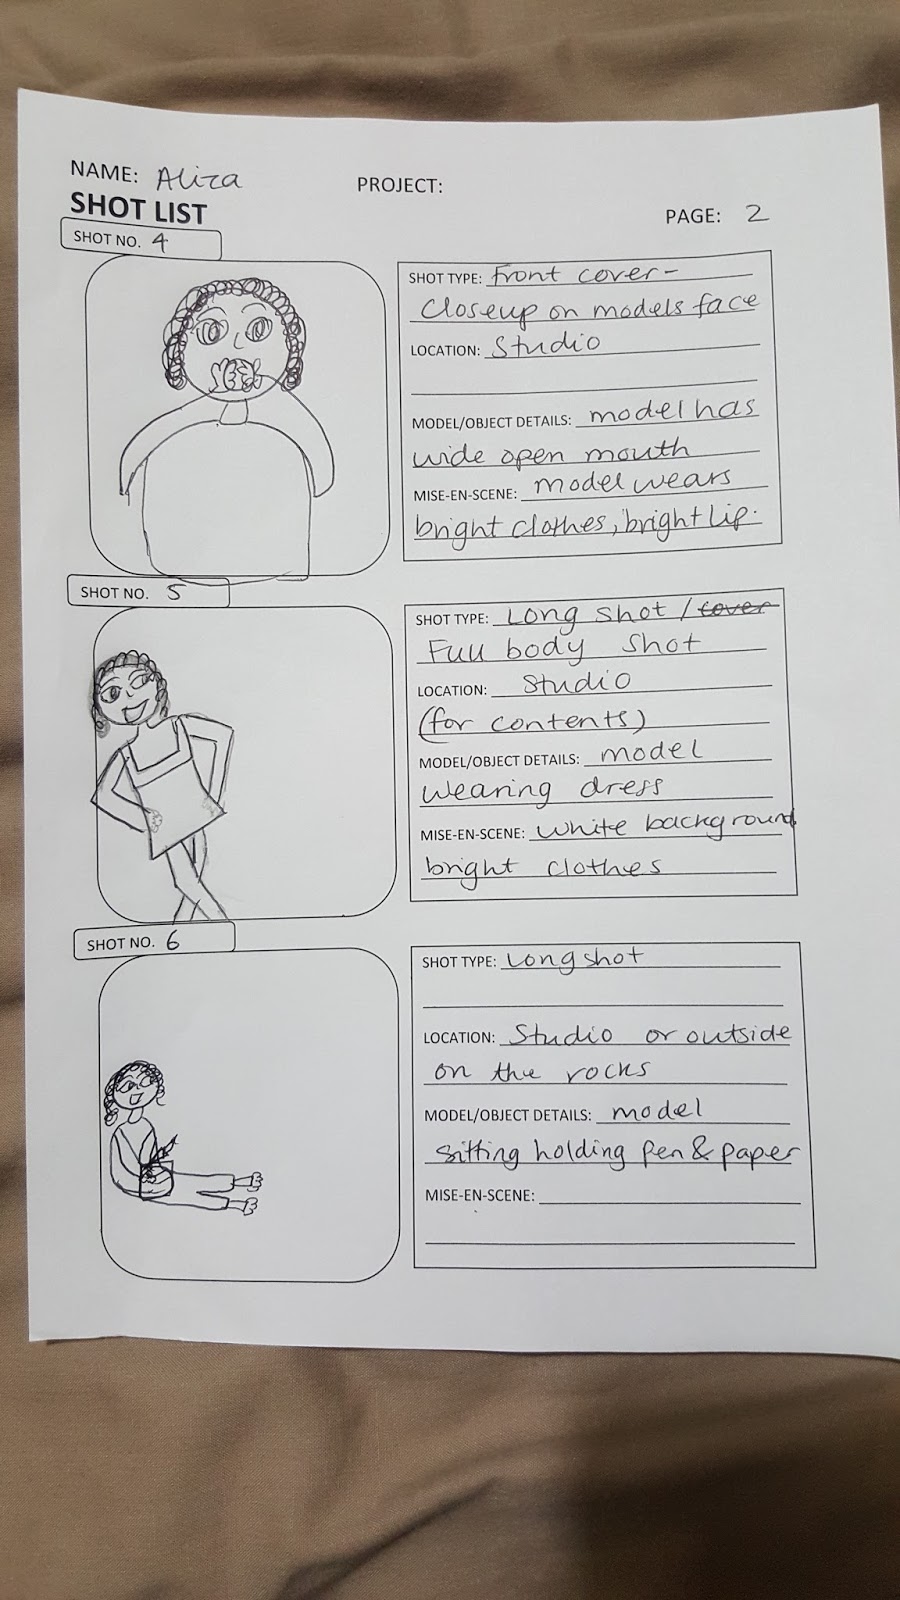 NAME: Aliza PROJECT:
SHOT LIST
PAGE: 2
SHOT NO. 4
SHOT TYPE: Front cover-
Closeup on models face
LOCATION: Studio
MODEL/OBJECT DETAILS: model has
wide open mouth
MISE-EN-SCENE: model wears
bright clothes, bright lip.
SHOT NO. 5
SHOT TYPE: Long shot / cover
Full body shot
LOCATION: Studio
(for contents)
MODEL/OBJECT DETAILS: model
wearing dress
MISE-EN-SCENE: white background
bright clothes
SHOT NO. 6
SHOT TYPE: Long shot
LOCATION: Studio or outside
on the rocks
MODEL/OBJECT DETAILS: model
sitting holding pen & paper
MISE-EN-SCENE: